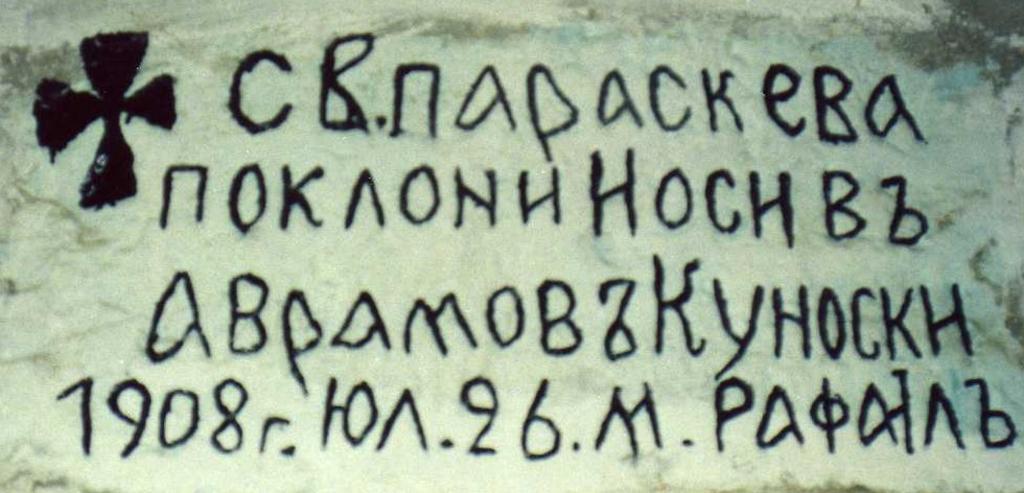 СВ. ПАРАСКЕВА
ПОКЛОНИ НОСИ ВЪ
АВРАМОВЪ КУНОСКИ
1908 г. ЮЛ. 26. М. РАФАІЛЪ